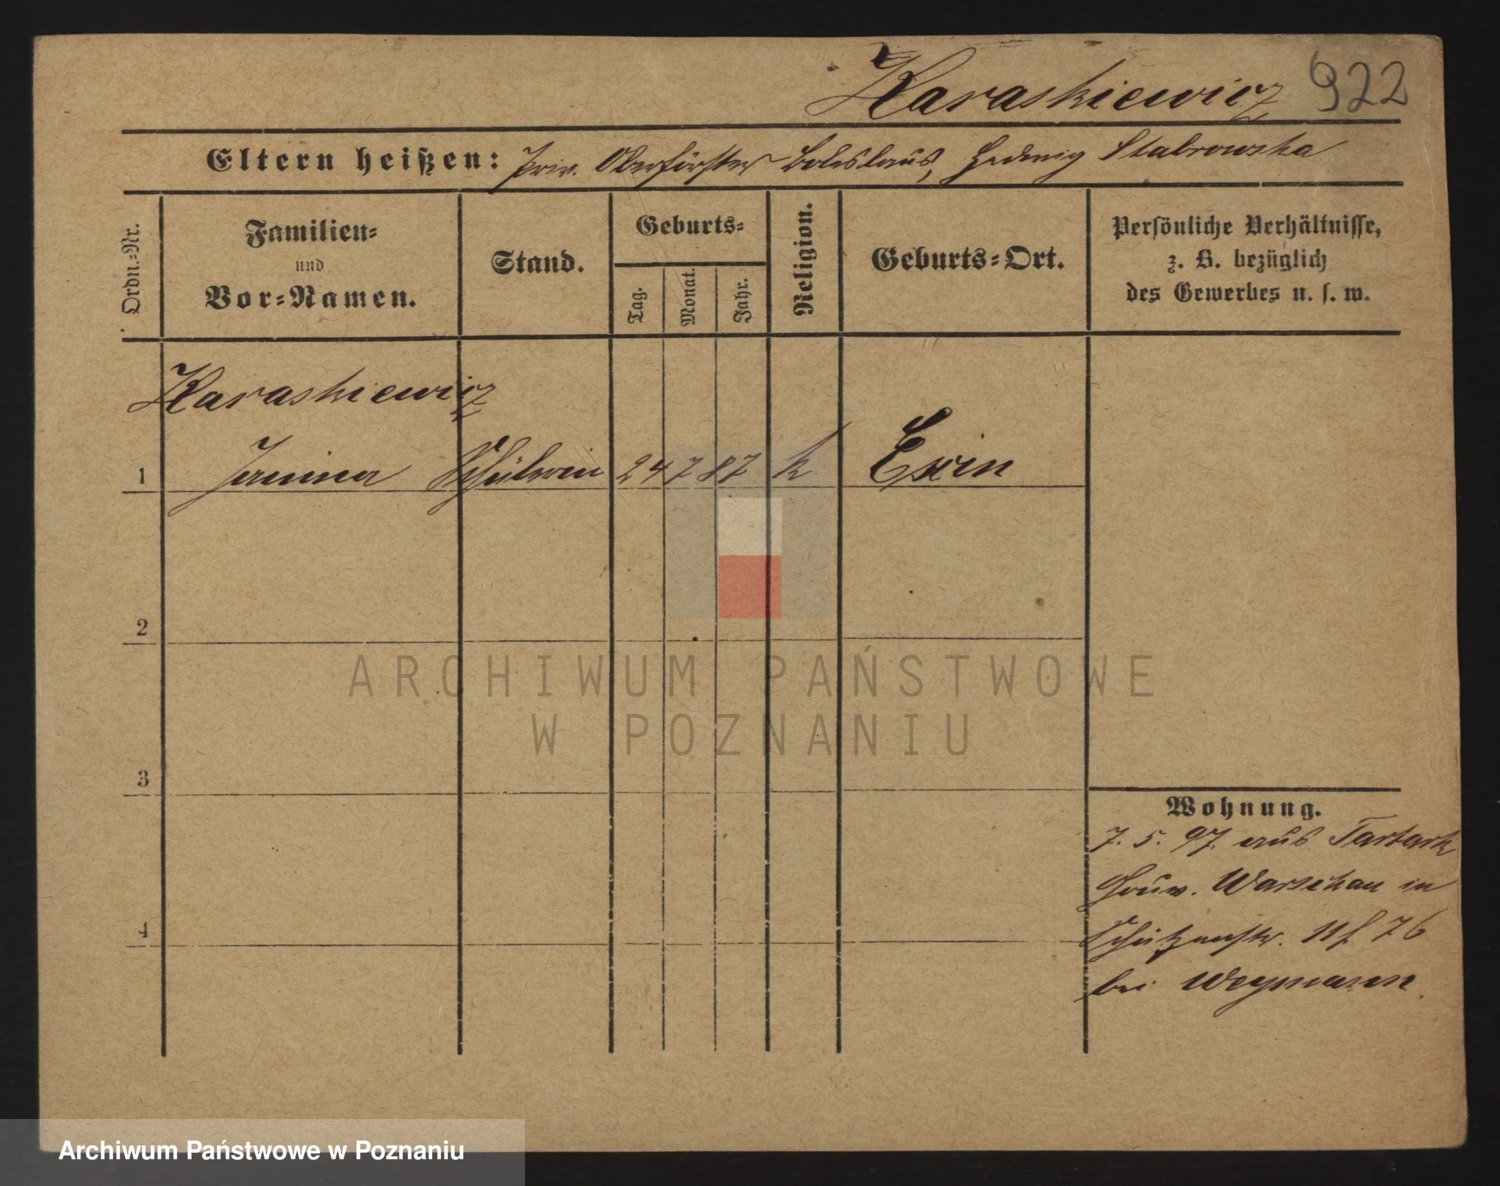 Karaskiewicz 922
Eltern heißen: Priv. Oberförster Boleslaus, Hedwig Stabrowska
Ordn.-Nr.
Familien-
und
Vor-Namen.
Stand.
Geburts-
Tag.
Monat.
Jahr.
Religion.
Geburts-Ort.
Persönliche Verhältnisse,
z. B. bezüglich
des Gewerbes u. s. w.
Karaskiewicz
1 Janina Schülerin 24 7 87 k Exin
2
3
4
Wohnung.
7. 5. 97. aus Tartark
Gouv. Warschau in
Schützenstr. 11/ 76
bei Weymann
ARCHIWUM PAŃSTWOWE
W POZNANIU
Archiwum Państwowe w Poznaniu